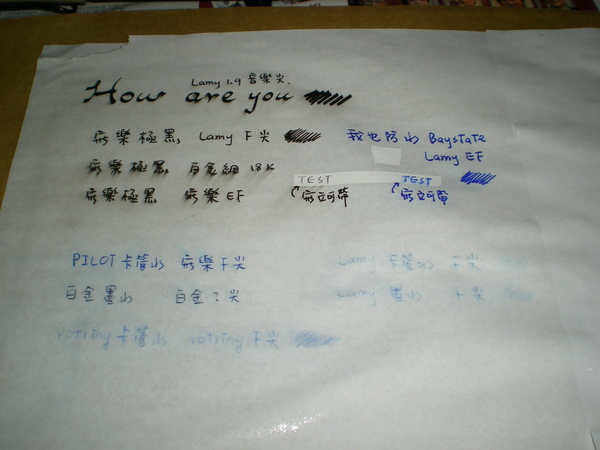 Lamy 1.9 音樂尖.
How are you
寫樂極黑 Lamy F尖
我也防水 Baystate
Lamy EF
寫樂極黑 白金細 18K
TEST
TEST
寫樂極黑 寫樂 EF
寫立可帶
寫立可帶
PILOT 卡管水 寫樂 F尖
Lamy 卡管水 F尖
白金墨水 白金?尖
Lamy 墨水 F尖
rotring 卡管水 rotring F尖